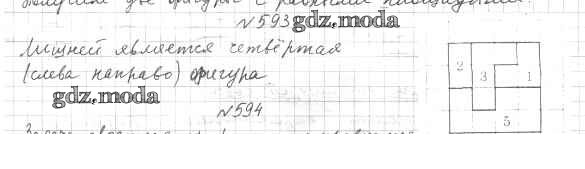 две фигуры с равными площадями.
№593 gdz.moda
Лишней является четвёртая
(слева направо) фигура
gdz.moda
2 3 1
5
№594